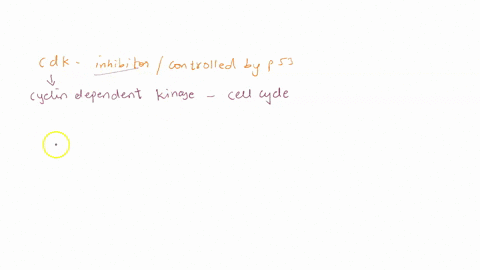 cdk - inhibitor / controlled by p53
cyclin dependent kinase - cell cycle